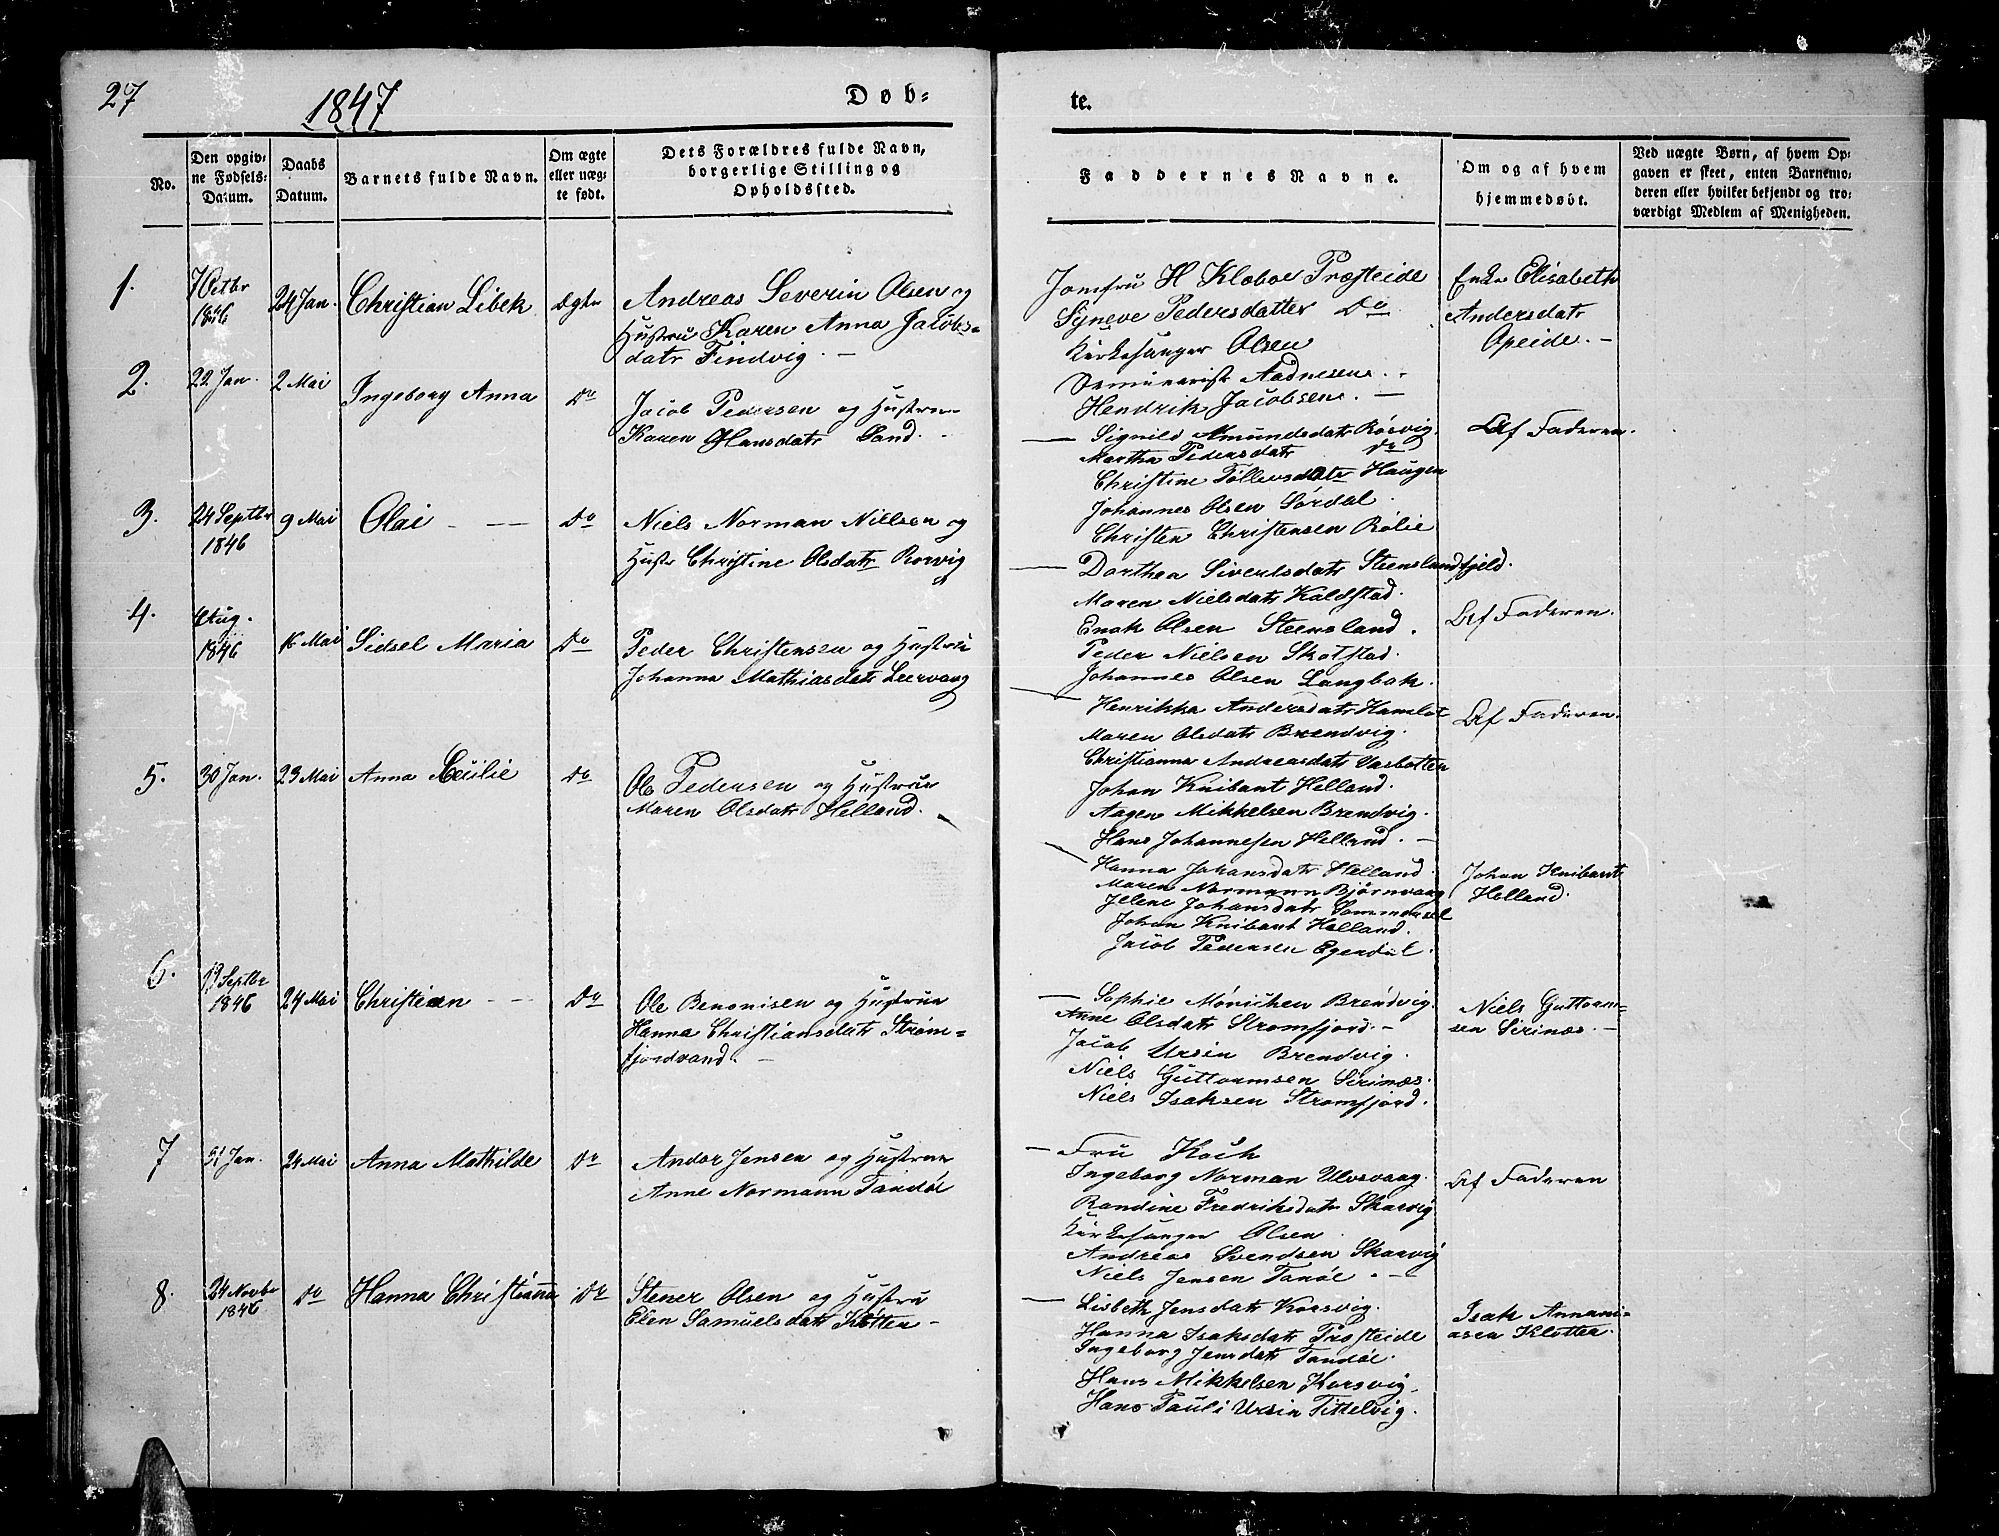 27
1847
Døb-
te.
No.
Den opgiv-
ne Fødsels-
Datum.
Daabs
Datum.
Barnets fulde Navn.
Om ægte
eller uæg-
te født.
Dets Forældres fulde Navn,
borgerlige Stilling og
Opholdssted.
Faddernes Navne.
Om og af hvem
hjemmedøbt.
Ved uægte Børn, af hvem Op-
gaven er skeet, enten Barnemo-
deren eller hvilket bekjendt og tro-
værdigt Medlem af Menigheden.
1.
7 Octbr
1846
24 Jan.
Christian Libek
Ægte
Andreas Severin Olsen og
Hustru Karen Anna Jacobs-
datr Findvig. —
Jomfru H Klæboe Præsteide
Syneve Pedersdatter Do
Kirkesanger Olsen
Seminarist Aadnesen. -
Hendrik Jacobsen. —
Enke Elisabeth
Andersdatr
Opeide. —
2.
22 Jan.
2 Mai
Ingeborg Anna
Do
Jacob Pedersen og Hustrue
Karen Hansdatr Sand. -
— Signild Amundsdatr Rørvig.
Martha Pedersdatr Do
Christine Tollevsdatr Haugen
Johannes Olsen Sørdal.
Christen Christensen Rølie
Af Faderen.
3.
24 Septbr
1846
9 Mai
Olai - — —
Do
Niels Norman Nielsen og
Hustr Christine Olsdatr Rorvig
— Dorthea Sivertsdatr Steenslandfjeld.
Maren Nielsdatr Kaldstad.
Enok Olsen Steensland.
Peder Nielsen Skotstad.
Johannes Olsen Langbak.
Af Faderen.
4.
Aug.
1846
16 Mai
Sidsel Maria
Do
Peder Christensen og Hustru
Johanna Mathiasdatr Leervaag
— Henrikka Andersdatr Hamlot
Maren Olsdatr Brendvig.
Christianna Andreasdatr Vasbotten
Johan Knibant Helland.
Aagen Mikkelsen Brendvig.
Hans Johannesen Helland. —
Af Faderen.
5.
30 Jan.
23 Mai
Anna Cecilie
Do
Ole Pedersen og Hustrue
Maren Olsdatr Helland.
— Hanna Johansdatr Helland
Maren Normann Bjørnvaag
Jelene Johansdatr Sommersel
Johan Knibant Helland.
Jacob Pedersen Egendal.
Johan Knibant
Helland.
6.
19 Septbr
1846
24 Mai
Christian - -
Do
Ole Benonisen og Hustrue
Hanna Christiansdatr Strøm-
fjordvand. —
— Sophie Mønichen Brendvig.
Anne Olsdatr Stromfjord. -
Jacob Ursin Brendvig.
Niels Guttormsen Sirinæs.
Niels Isaksen Stromfjord.
Niels Guttorm-
sen Sirinæs. —
7
31 Jan.
24 Mai
Anna Mathilde
Do
Andor Jensen og Hustrue
Anne Normann Tandøl
— Fru Koch
Ingeborg Norman Ulvsvaag.
Randine Fredriksdatr Skarvig
Kirkesanger Olsen.
Andreas Svendsen Skarvig
Niels Jensen Tanøl. —
Af Faderen
8.
24 Novbr
1846
Do
Hanna Christianna
Do
Stener Olsen og Hustru
Elen Samuelsdatr Kløtten -
— Lisbeth Jensdatr Korsvig.
Hanna Isaksdatr Præsteide
Ingeborg Jensdatr Tandøl.
Hans Mikkelsen Korsvig.
Hans Pauli Ursin Tittelvig.
Isak Annani-
asen Kløtten.